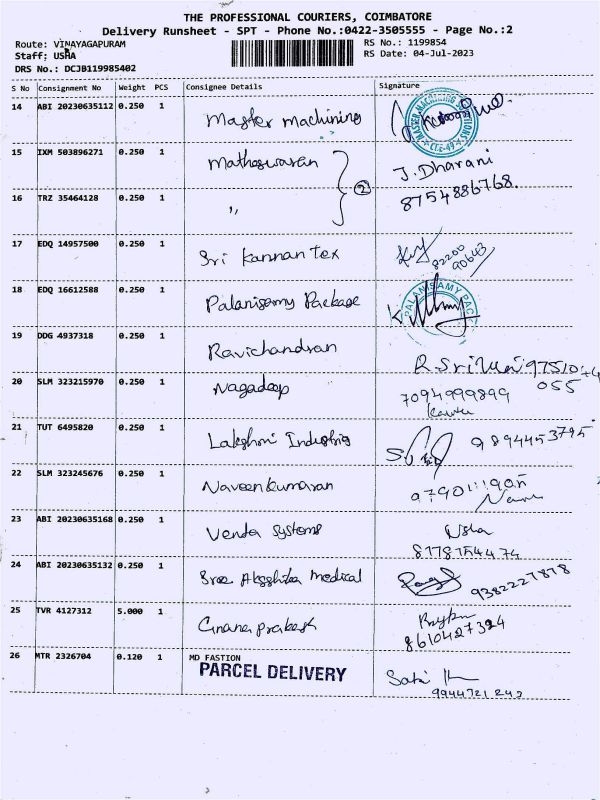 THE PROFESSIONAL COURIERS, COIMBATORE
Delivery Runsheet - SPT - Phone No.:0422-3505555 - Page No.:2
Route: VINAYAGAPURAM RS No.: 1199854
Staff: USHA RS Date: 04-Jul-2023
DRS No.: DCJB119985402
S No Consignment No Weight PCS Consignee Details Signature
14 ABI 20230635112 0.250 1 Master machining
15 IXM 503896271 0.250 1 Matheswaran J. Dharani
16 TRZ 35464128 0.250 1 " 2 8754886768.
17 EDQ 14957500 0.250 1 Sri Kannan Tex 82200
90643
18 EDQ 16612588 0.250 1 Palanisamy Package PALANISAMY PACK
19 DDG 4937318 0.250 1 Ravichandran
20 SLM 323215970 0.250 1 Nagadeep 7094999899 055
21 TUT 6495820 0.250 1 Lakshmi Industries 9894453795
22 SLM 323245676 0.250 1 Naveenkumaran
23 ABI 20230635168 0.250 1 Venda Systems Usha
8178754474
24 ABI 20230635132 0.250 1 Sree Medical 9382227878
25 TVR 4127312 5.000 1 Gnanaprakash
8610427324
26 MTR 2326704 0.120 1 MD FASTION
PARCEL DELIVERY
9944721242